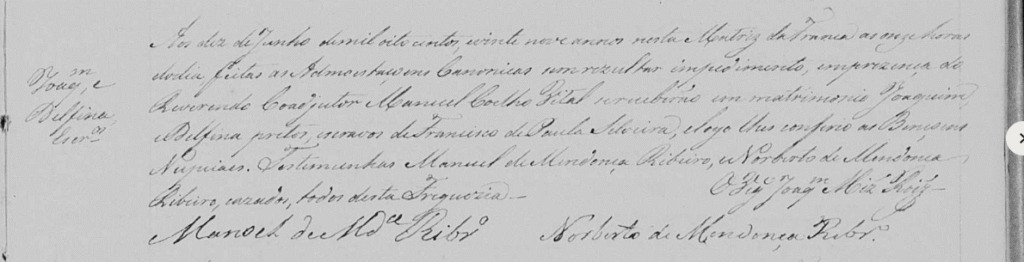 Aos dez de Junho de mil oito centos, e vinte nove annos nesta Matriz da Franca as onze horas
Joaq.m e
do dia, feitas as Admoestaçoens Canonicas sem rezultar impedimento, em prezença do
Delfina,
Reverendo Coadjutor Manuel Coelho Vital se receberão em matrimonio Joaquim,
Escr.os
e Delfina pretos, escravos de Francisco de Paula Silveira, e logo lhes conferio as Bençoens
Nupciaes. Testemunhas Manuel de Mendonça Ribeiro, e Norberto de Mendonca
Ribeiro, cazados, todos desta Freguezia —
O Vig.o Joaq.m Miz' Roiz'
Manoel de Md.ca Ribr.o
Norberto de Mendonça Ribr.o